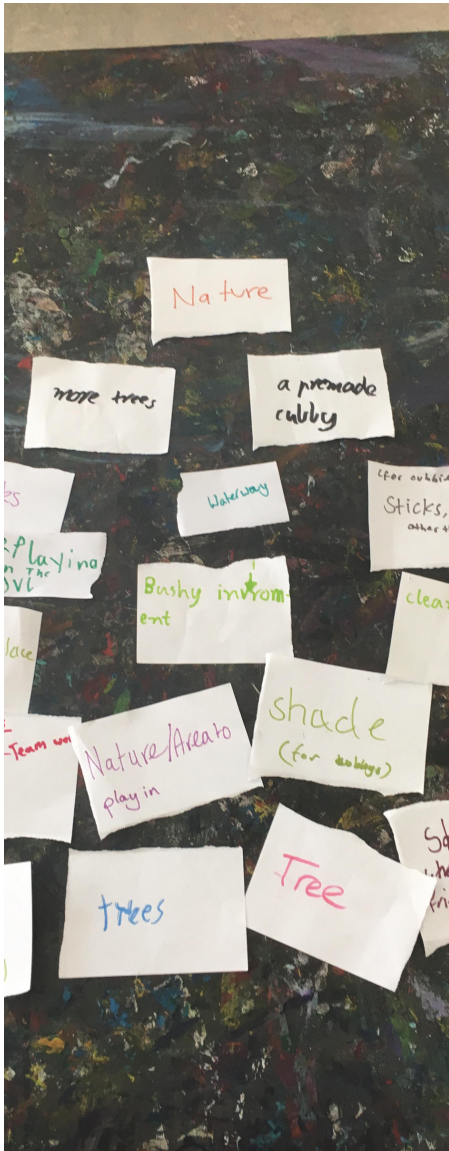 Nature
more trees
a premade
cubby
Waterway
(for outside
Sticks,
other th
Playing
The
Bushy invrom-
ent
clear
lace
Team wor
Nature/Area to
play in
shade
(for cubbys)
trees
Tree